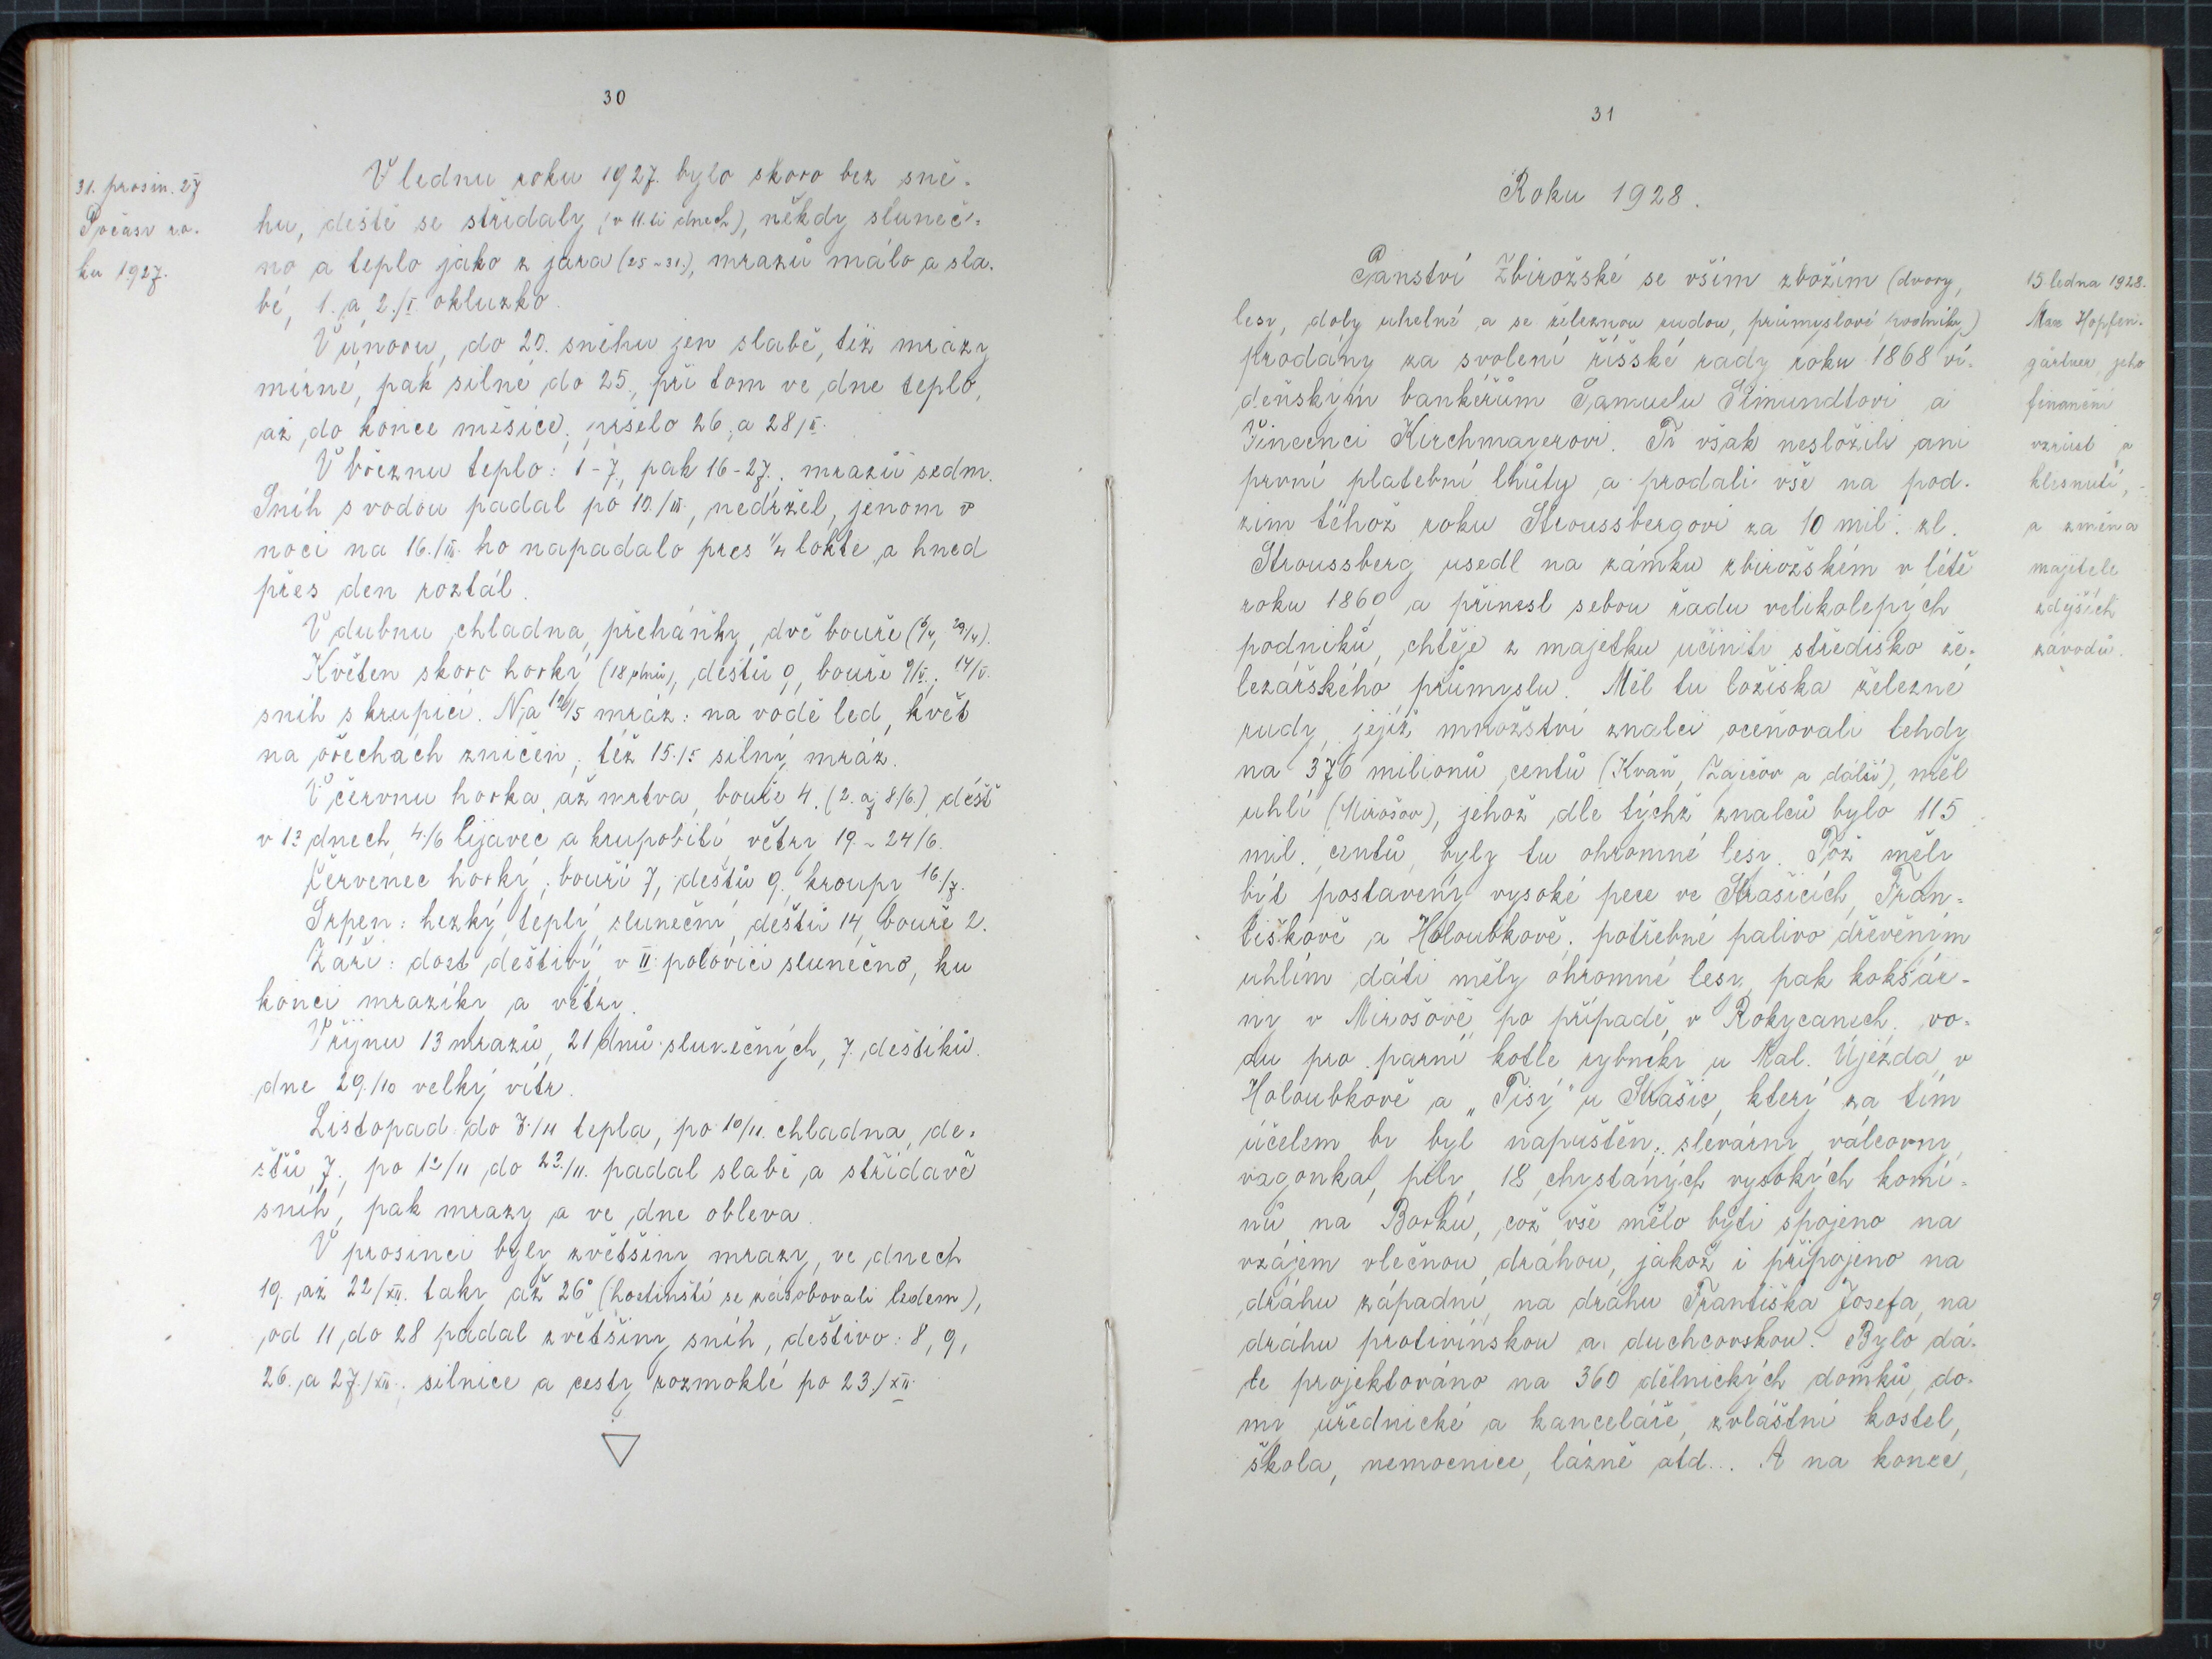 30
31. prosin. 27
Počasí ro-
ku 1927.
V lednu roku 1927. bylo skoro bez sně-
hu, deště se střídaly (v 11.ti dnech), někdy sluneč-
no a teplo jako z jara (25-31.), mrazů málo a sla-
bé, 1. a 2./I. okluzko.
V únoru, do 20. sněhu jen slabě, též mrazy
mírné, pak silné do 25., při tom ve dne teplo,
až do konce měsíce; pršelo 26. a 28/II.
V březnu teplo: 1-7, pak 16-27.; mrazů sedm.
Sníh s vodou padal po 10./III., nedržel, jenom v
noci na 16./III. ho napadalo přes 1/4 lokte a hned
přes den roztál.
V dubnu chladna, přeháňky, dvě bouře (6/4, 29/4).
Květen skoro horký (18 dnů), dešťů 9, bouře 9/V., 14/V.
sníh s krupicí. Na 12/5 mráz: na vodě led, květ
na ořechách zničen, též 15./5 silný mráz.
V červnu horka až mrtva, bouře 4. (2. až 8/6.), déšť
v 13 dnech, 4./6 lijavec a krupobití větry 19.-24/6.
Červenec horký; bouří 7, dešťů 9, kroupy 16./7.
Srpen: hezký, teplý, sluneční, dešťů 14, bouře 2.
Září: dost deštivý, v II. polovici slunečno, ku
konci mrazíky a větry.
V říjnu 13 mrazů, 21 dnů slunečných, 7. deštíků.
dne 29./10 velký vítr.
Listopad do 7./11 tepla, po 10/11. chladna, de-
šťů 7., po 12/11 do 23./11. padal slabě a střídavě
sníh, pak mrazy a ve dne obleva.
V prosinci byly zvětšiny mrazy, ve dnech
19. až 22/XII. taky až 26° (hostinští se zásobovali ledem),
od 11 do 28 padal zvětšiny sníh, deštivo: 8, 9,
26. a 27./XII., silnice a cesty rozmoklé po 23./XII.
31
Roku 1928.
15. ledna 1928.
Max Hopfen-
gärtner, jeho
finanční
vzrůst a
klesnutí,
a změna
majitele
zdyších
závodů.
Panství Zbirožské se vším zbožím (dvory,
lesy, doly uhelné a se železnou rudou, průmyslové podniky)
prodány za svolení říšské rady roku 1868 ví-
deňským bankéřům Samuelu Simundtovi a
Vincenci Kirchmayerovi. Ti však nesložili ani
první platební lhůty a prodali vše na pod-
zim téhož roku Stroussbergovi za 10 mil. zl.
Stroussberg usedl na zámku zbirožském v létě
roku 1869 a přinesl sebou řadu velikolepých
podniků, chtěje z majetku učiniti středisko že-
lezářského průmyslu. Měl tu ložiska železné
rudy, jejíž množství znalci oceňovali tehdy
na 376 milionů centů (Kvaň, Zaječov a další), měl
uhlí (Mirošov), jehož dle týchž znalců bylo 115
mil. centů, byly tu ohromné lesy. Též měly
být postaveny vysoké pece ve Strašicích, Fran-
tiškově a Holoubkově; potřebné palivo dřevěným
uhlím dáti měly ohromné lesy, pak koksár-
ny v Mirošově, po případě v Rokycanech. vo-
du pro parní kotle rybníky u Mal. Újezda, v
Holoubkově a „Tisý" u Strašic, který za tím
účelem by byl napuštěn; slévárny, válcovny,
vagonka, pily, 18 chystaných vysokých komí-
nů, na Borku, což vše mělo býti spojeno na
vzájem vlečnou dráhou, jakož i připojeno na
dráhu západní, na dráhu Františka Josefa, na
dráhu protivínskou a duchcovskou. Bylo dá-
le projektováno na 360 dělnických domků, do-
my úřednické a kanceláře, zvláštní kostel,
škola, nemocnice, lázně atd... A na konec,